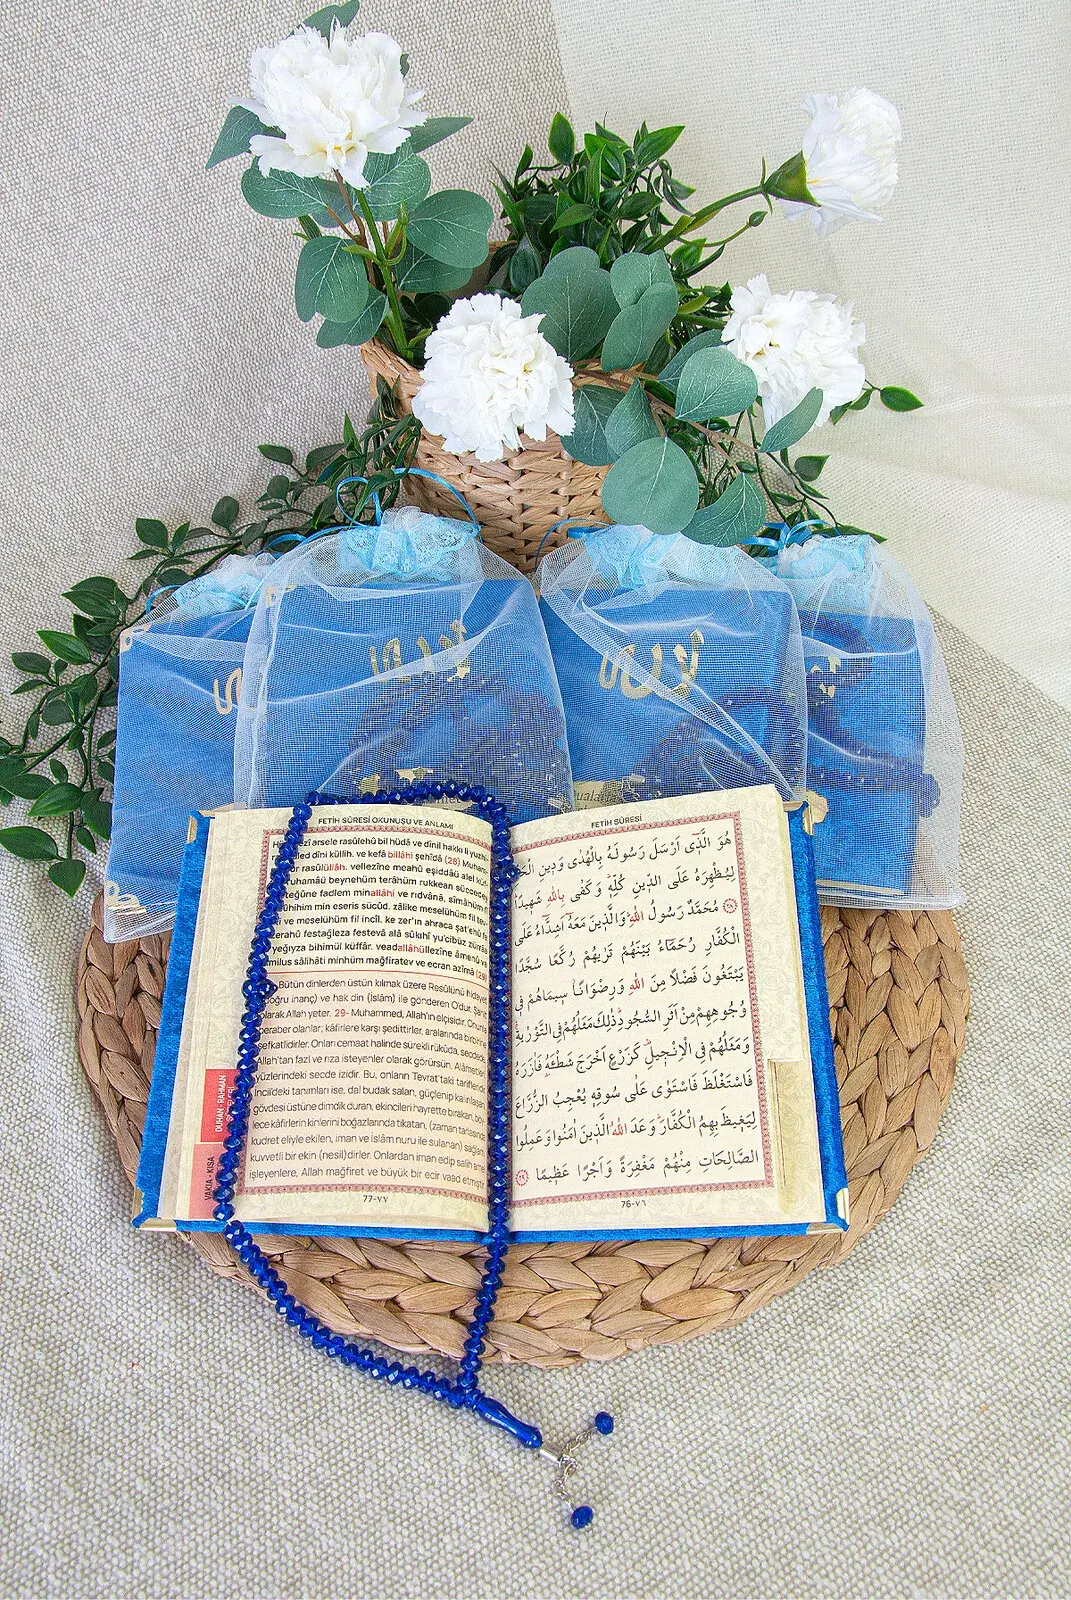 FETİH SÛRESİ OKUNUŞU VE ANLAMI
arsele rasûlehû bil hüdâ ve dînil hakkı li yuzhi-
dîni küllih. ve kefâ billâhi şehîdâ (28) Muham-
rasûlüllâh. vellezîne meahû eşiddâü alel küf-
ruhamâü beynehüm terâhüm rukkean sücceden
fadlem minallâhi ve rıdvânâ, sîmâhüm fî
min eseris sücûd. zâlike meselühüm fit tev-
ve meselühüm fil incîl. ke zer'in ahraca şat'ehû fe
festağleza festevâ alâ sûkıhî yu'cibüz zürrâa
bihimül küffâr. veadallâhüllezîne âmenû ve
sâlihâti minhüm mağfiratev ve ecran azîmâ (29)
Bütün dinlerden üstün kılmak üzere Resûlünü hidayet
inanç) ve hak din (İslâm) ile gönderen O'dur. Şahit
olarak Allah yeter. 29- Muhammed, Allah'ın elçisidir. Onunla
beraber olanlar; kâfirlere karşı şedittirler, aralarında birbirine
şefkatlidirler. Onları cemaat halinde sürekli rükûda, secdede,
Allah'tan fazl ve rıza isteyenler olarak görürsün. Alâmetleri
yüzlerindeki secde izidir. Bu, onların Tevrat'taki tarifleridir.
İncil'deki tanımları ise, dal budak salan, güçlenip kalınlaşan,
gövdesi üstüne dimdik duran, ekincileri hayrette bırakan, böy-
lece kâfirlerin kinlerini boğazlarında tıkatan, (zaman tarlasında
kudret eliyle ekilen, iman ve islâm nuru ile sulanan) sağlam
kuvvetli bir ekin (nesil)dirler. Onlardan iman edip salih amel
işleyenlere, Allah mağfiret ve büyük bir ecir vaad etmiştir.
77-٧٧
DUHAN - RAHMAN
VAKIA - KISA
FETİH SÛRESİ
هُوَ الَّذٖٓي اَرْسَلَ رَسُولَهُ بِالْهُدٰى وَدٖينِ الْحَقِّ
لِيُظْهِرَهُ عَلَى الدّٖينِ كُلِّهٖ وَكَفٰى بِاللّٰهِ شَهٖيدًا
﴿٢٨﴾ مُحَمَّدٌ رَسُولُ اللّٰهِ وَالَّذٖينَ مَعَهُٓ اَشِدَّٓاءُ عَلَى
الْكُفَّارِ رُحَمَٓاءُ بَيْنَهُمْ تَرٰيهُمْ رُكَّعًا سُجَّدًا
يَبْتَغُونَ فَضْلًا مِنَ اللّٰهِ وَرِضْوَانًا سٖيمَاهُمْ فٖي
وُجُوهِهِمْ مِنْ اَثَرِ السُّجُودِ ذٰلِكَ مَثَلُهُمْ فِي التَّوْرٰيةِ
وَمَثَلُهُمْ فِي الْاِنْجٖيلِ كَزَرْعٍ اَخْرَجَ شَطْـَٔهُ فَاٰزَرَهُ
فَاسْتَغْلَظَ فَاسْتَوٰى عَلٰى سُوقِهٖ يُعْجِبُ الزُّرَّاعَ
لِيَغٖيظَ بِهِمُ الْكُفَّارَ وَعَدَ اللّٰهُ الَّذٖينَ اٰمَنُوا وَعَمِلُوا
الصَّالِحَاتِ مِنْهُمْ مَغْفِرَةً وَاَجْرًا عَظٖيمًا ﴿٢٩﴾
76-٧٦